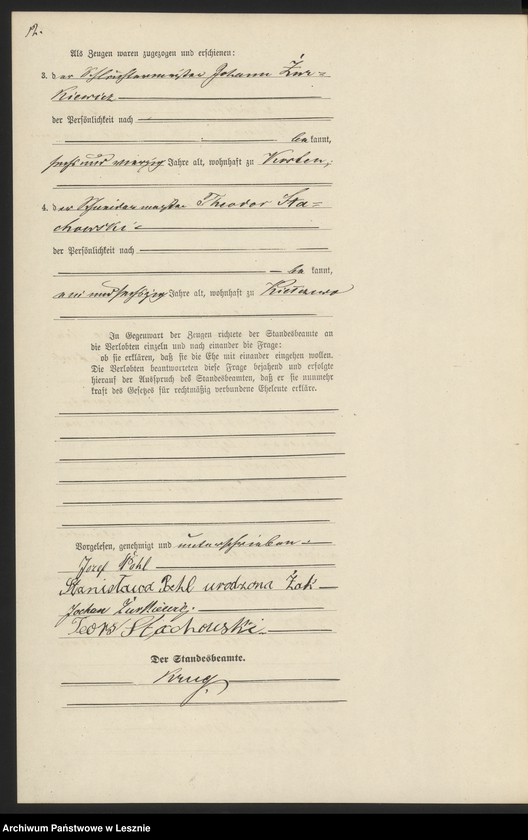 12.
Als Zeugen waren zugezogen und erschienen:
3. der Schlächtermeister Johann Żur=
kiewicz
der Persönlichkeit nach
bekannt,
sechs und vierzig Jahre alt, wohnhaft zu
4. der Schneidermeister Theodor Sta=
chowski
der Persönlichkeit nach
bekannt,
ein und sechszig Jahre alt, wohnhaft zu
In Gegenwart der Zeugen richtete der Standesbeamte an
die Verlobten einzeln und nach einander die Frage:
ob sie erklären, daß sie die Ehe mit einander eingehen wollen.
Die Verlobten beantworteten diese Frage bejahend und erfolgte
hierauf der Ausspruch des Standesbeamten, daß er sie nunmehr
kraft des Gesetzes für rechtmäßig verbundene Eheleute erkläre.
Vorgelesen, genehmigt und unterschrieben
Jozef
Stanisława Pehl urodzona Żak
Johan Żurkiewicz.
Teodor Stachowski
Der Standesbeamte.
Krug
Archiwum Państwowe w Lesznie